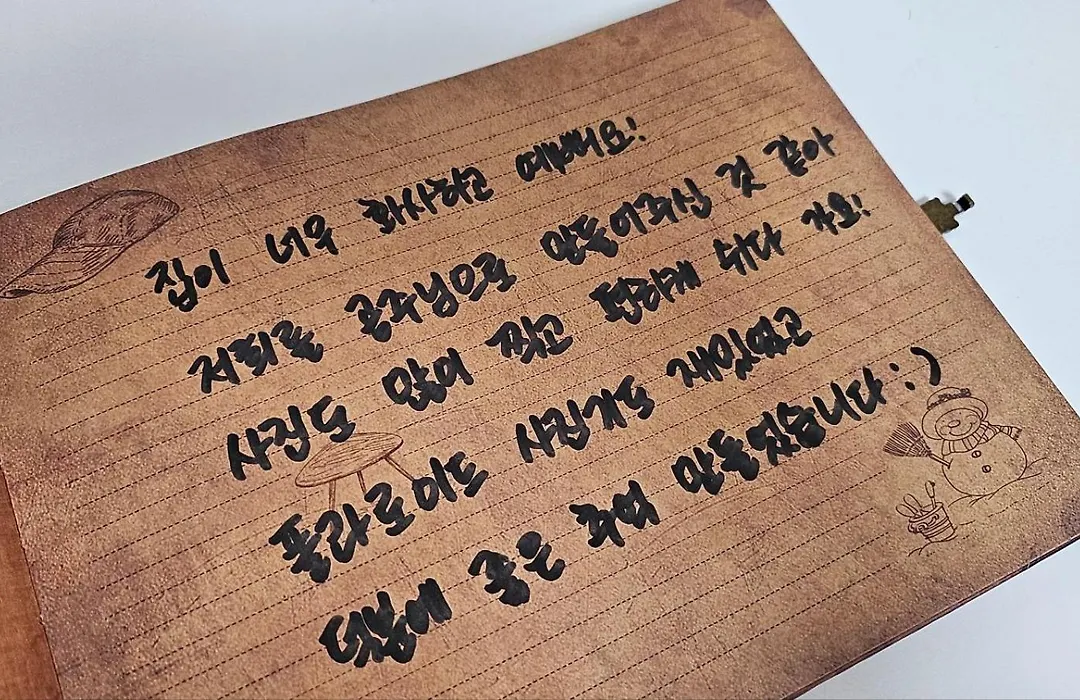 집이 너무 화사하고 예뻐요!
저희를 공주님으로 만들어주신 것 같아
사진도 많이 찍고 편하게 쉬다 가요!
폴라로이드 사진기도 재밌었고
덕분에 좋은 추억 만들었습니다 :)